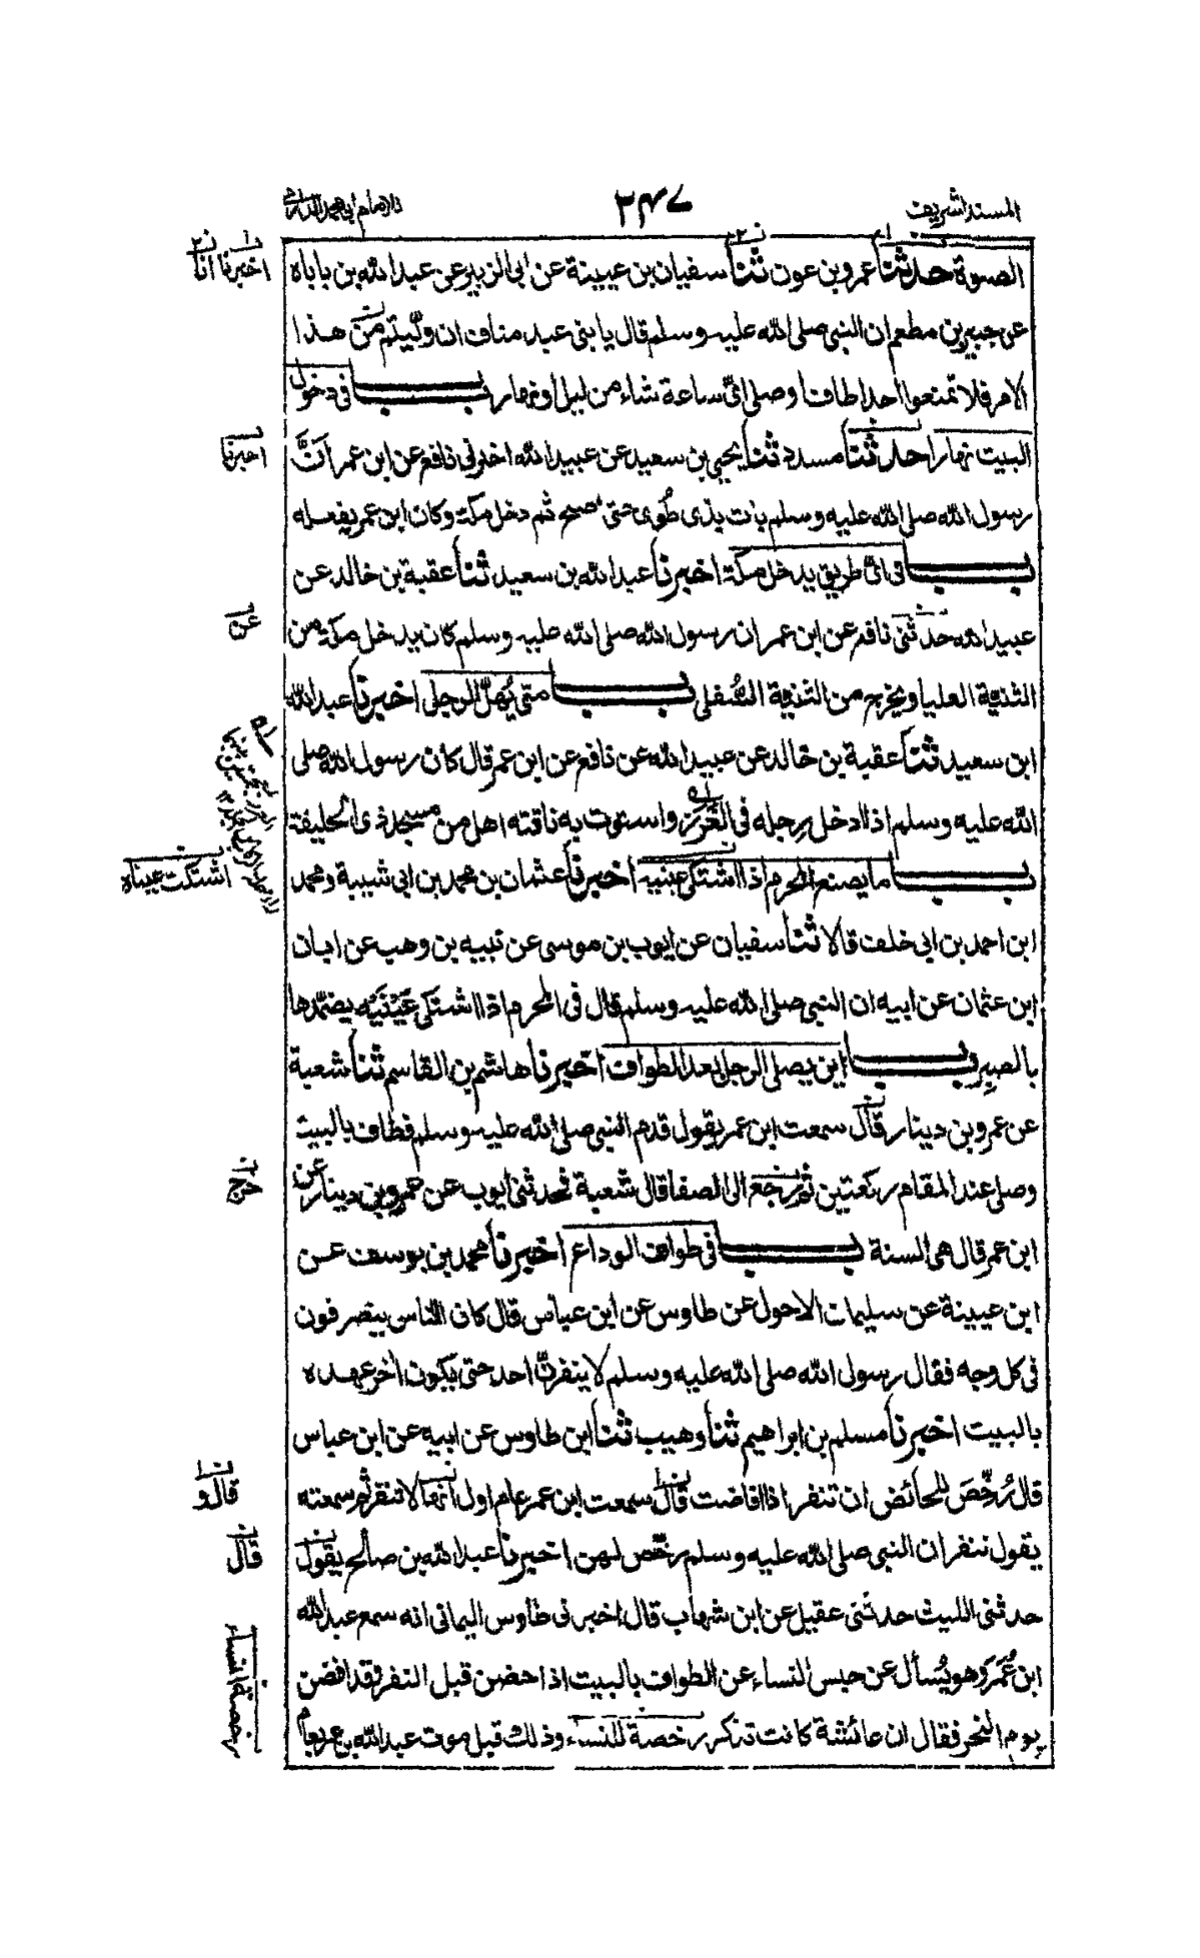 المسند الشريف
٢٤٧
للامام ابی محمد الدارمی
الصلوة حدثنا عمرو بن عون ثنا سفيان بن عيينة عن ابی الزبير عن عبد الله بن باباه
اخبرنا انا
عن جبير بن مطعم ان النبی صلی الله عليه وسلم قال يا بنی عبد مناف ان وليتم من هذا
الامر فلا تمنعوا احدا طاف او صلی ایّ ساعة شاء من ليل او نهار باب فی دخول
البيت نهارا حدثنا مسدد ثنا يحيی بن سعيد عن عبيد الله اخبرنی نافع عن ابن عمر انَّ
اخبرنا
رسول الله صلی الله عليه وسلم بات بذی طُوی حتی اصبح ثم دخل مكة وكان ابن عمر يفعله
باب فی ایّ طريق يدخل مكة اخبرنا عبد الله بن سعيد ثنا عقبة بن خالد عن
عبيد الله حدثنی نافع عن ابن عمر ان رسول الله صلی الله عليه وسلم كان يدخل مكة من
عن
الثنية العليا ويخرج من الثنية السُّفلی باب متی يُهلّ الرجل اخبرنا عبد الله
ابن سعيد ثنا عقبة بن خالد عن عبيد الله عن نافع عن ابن عمر قال كان رسول الله صلی
الله عليه وسلم اذا ادخل رجله فی الغَرْز واستوت به ناقته اهل من مسجد ذی الحليفة
باب ما يصنع المحرم اذا اشتكی عينيه اخبرنا عثمان بن محمد بن ابی شيبة ومحمد
اشتكت عيناه
ابن احمد بن ابی خلف قالا ثنا سفيان عن ايوب بن موسی عن نبيه بن وهب عن ابان
ابن عثمان عن ابيه ان النبی صلی الله عليه وسلم قال فی المحرم اذا اشتكی عَيْنَيْه يضمّدها
بالصبر باب اين يصلی الرجل بعد الطواف اخبرنا هاشم بن القاسم ثنا شعبة
عن عمرو بن دينار قال سمعت ابن عمر يقول قدم النبی صلی الله عليه وسلم فطاف بالبيت
وصلی عند المقام ركعتين ثم رجع الی الصفا قال شعبة فحدثنی ايوب عن عمرو بن دينار عن
خرج
ابن عمر قال هی السنة باب فی طواف الوداع اخبرنا محمد بن يوسف عن
ابن عيينة عن سليمان الاحول عن طاوس عن ابن عباس قال كان الناس ينصرفون
فی كل وجه فقال رسول الله صلی الله عليه وسلم لا ينفرنّ احد حتی يكون اٰخر عهده
بالبيت اخبرنا مسلم بن ابراهيم ثنا وهيب ثنا ابن طاوس عن ابيه عن ابن عباس
قال رُخِّصَ للحائض ان تنفر اذا افاضت قال سمعت ابن عمر عام اول انها لا تنفر ثم سمعته
قال و
يقول تنفر ان النبی صلی الله عليه وسلم رخّص لهن اخبرنا عبد الله بن صالح يقول
قال
حدثنی الليث حدثنی عقيل عن ابن شهاب قال اخبرنی طاوس اليمانی انه سمع عبد الله
ابن عُمَر وهو يُسأل عن حبس النساء عن الطواف بالبيت اذا حضن قبل النفر وقد افضن
يوم النحر فقال ان عائشة كانت تذكر رخصة للنساء وذلك قبل موت عبد الله بن عمر بعام
رخصة النساء